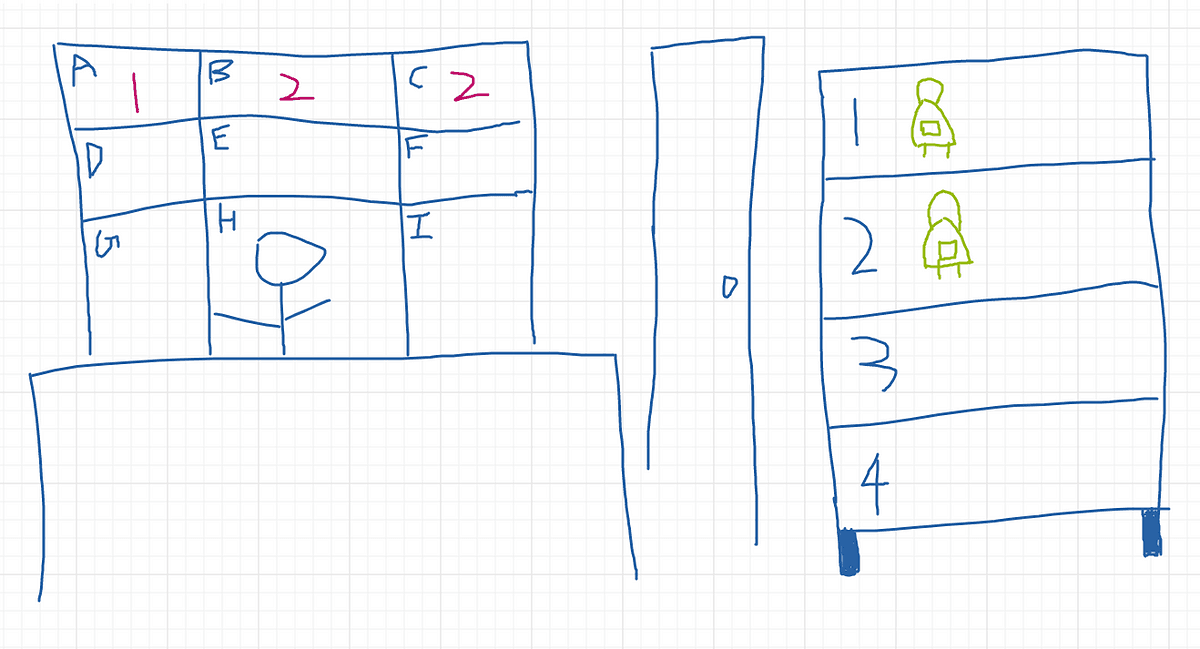 A 1 B 2 C 2
D E F
G H I
1
2
3
4